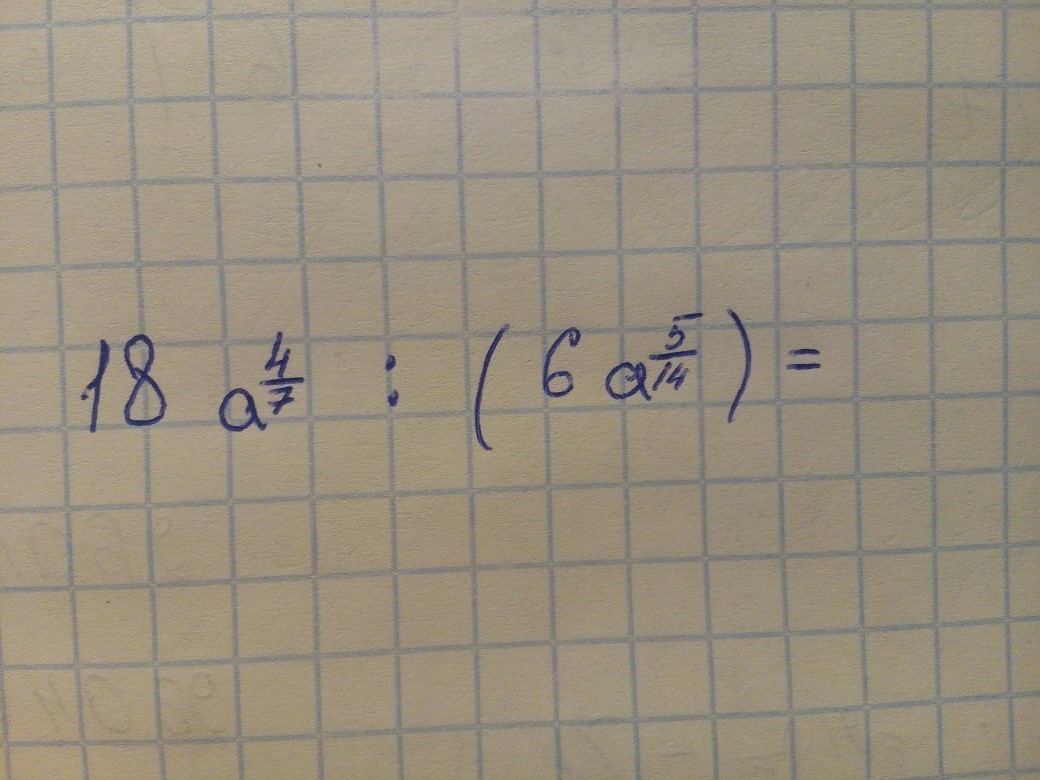 18 a^{\frac{4}{7}} : ( 6 a^{\frac{5}{14}} ) =